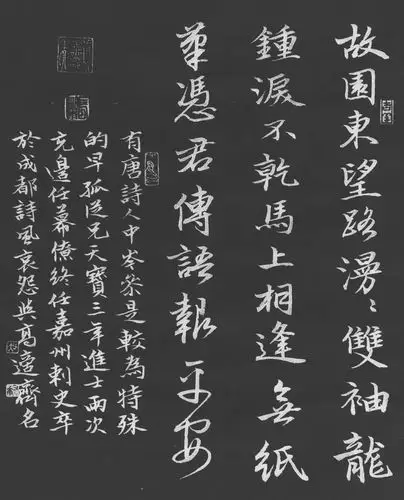 故園東望路漫〻雙袖龍
鍾淚不乾馬上相逢無紙
筆憑君傳語報平安
有唐詩人中岑參是較為特殊
的早孤從兄天寶三年進士兩次
充邊任幕僚終任嘉州刺史卒
於成都詩風哀怨與高適齊名